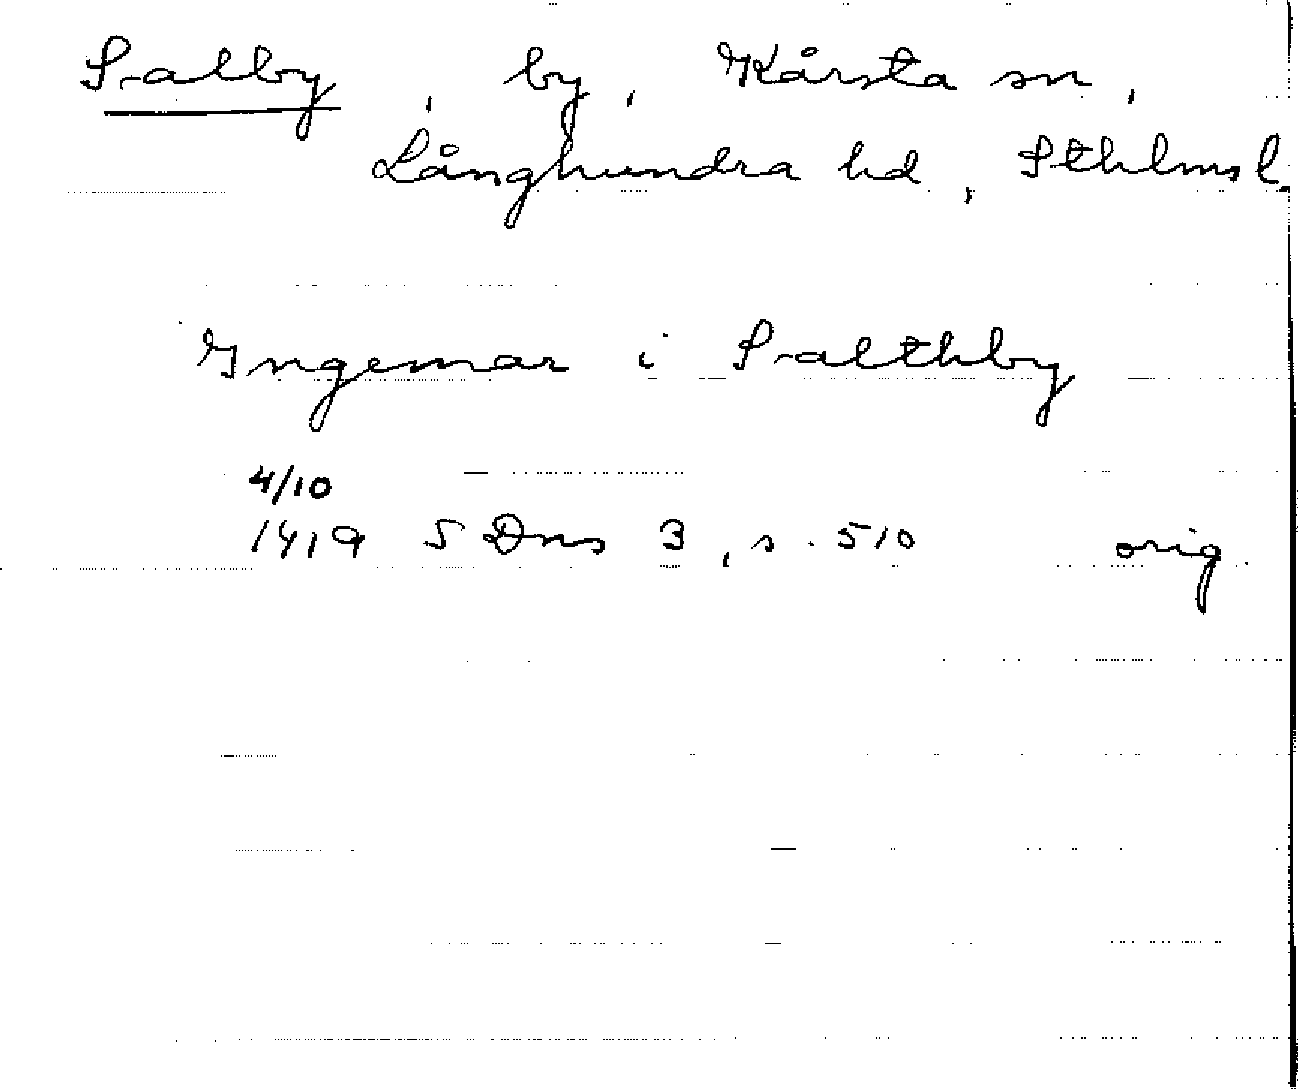 Salby, by, Kårsta sn,
Långhundra hd, Sthlms l.
Ingemar i Salthby
4/10
1419 S Dns 3, s. 510 orig.